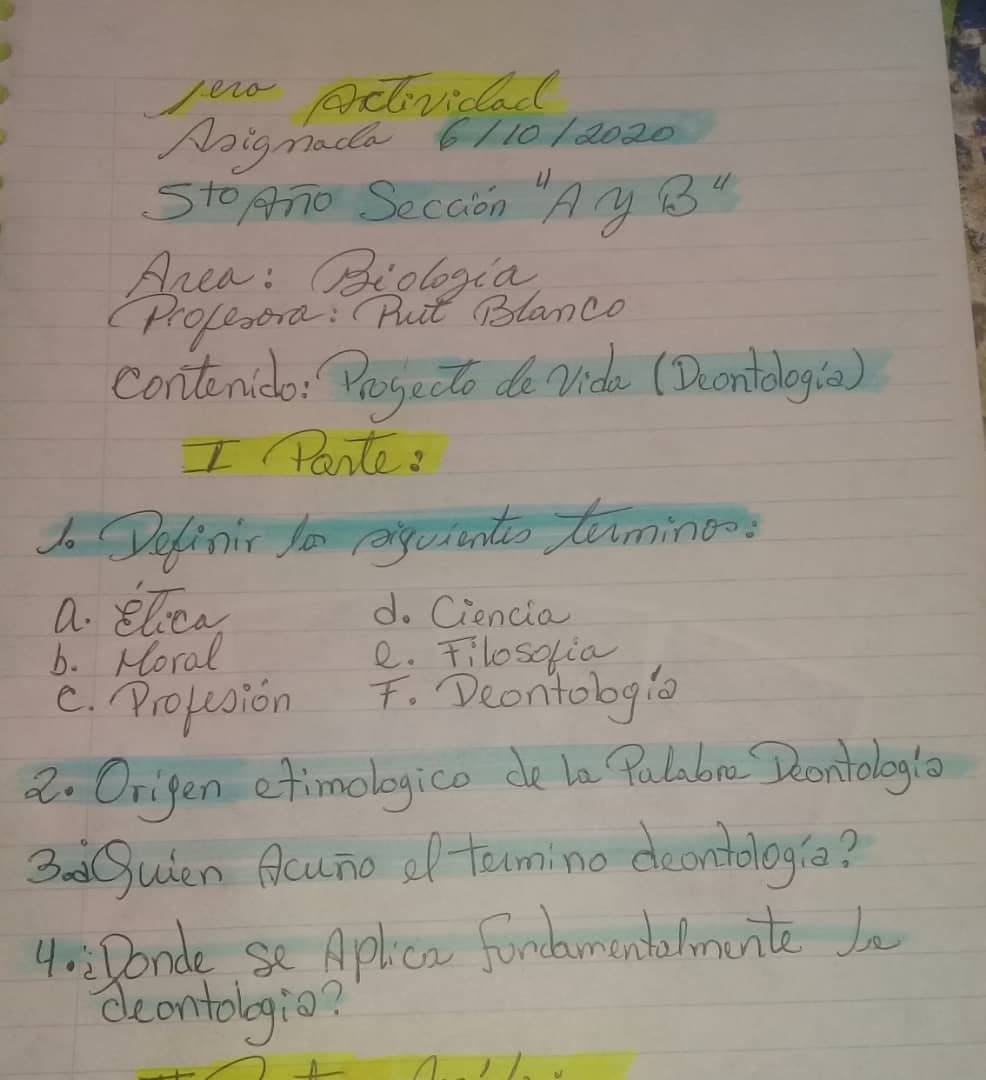 1era Actividad
Asignada 6/10/2020
5to Año Sección "A y B"
Area: Biología
Profesora: Rut Blanco
Contenido: Proyecto de Vida (Deontología)
I Parte:
1. Definir los siguientes terminos:
a. Ética d. Ciencia
b. Moral e. Filosofia
c. Profesión F. Deontología
2. Origen etimologico de la Palabra Deontología
3. ¿Quien Acuño el termino deontología?
4. ¿Donde se Aplica fundamentalmente la
deontologia?